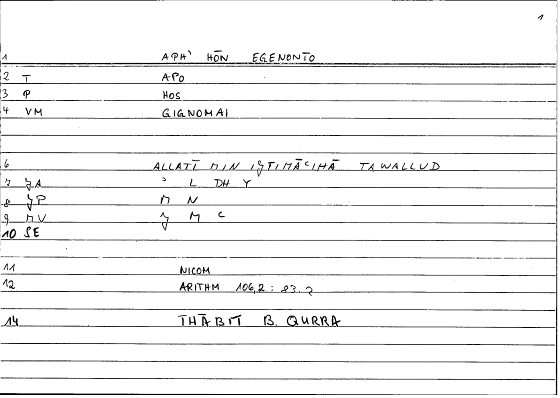 1
1 APH' HŌN EGENONTO
2 T APO
3 P HOS
4 VM GIGNOMAI
6 ALLATĪ MIN IǦTIMĀʿIHĀ TAWALLUD
7 ǦA ʾ L DH Y
8 ǦP M N
9 MV Ǧ M ʿ
10 SE
11 NICOM
12 ARITHM 106,2 :
14 THĀBIT B. QURRA